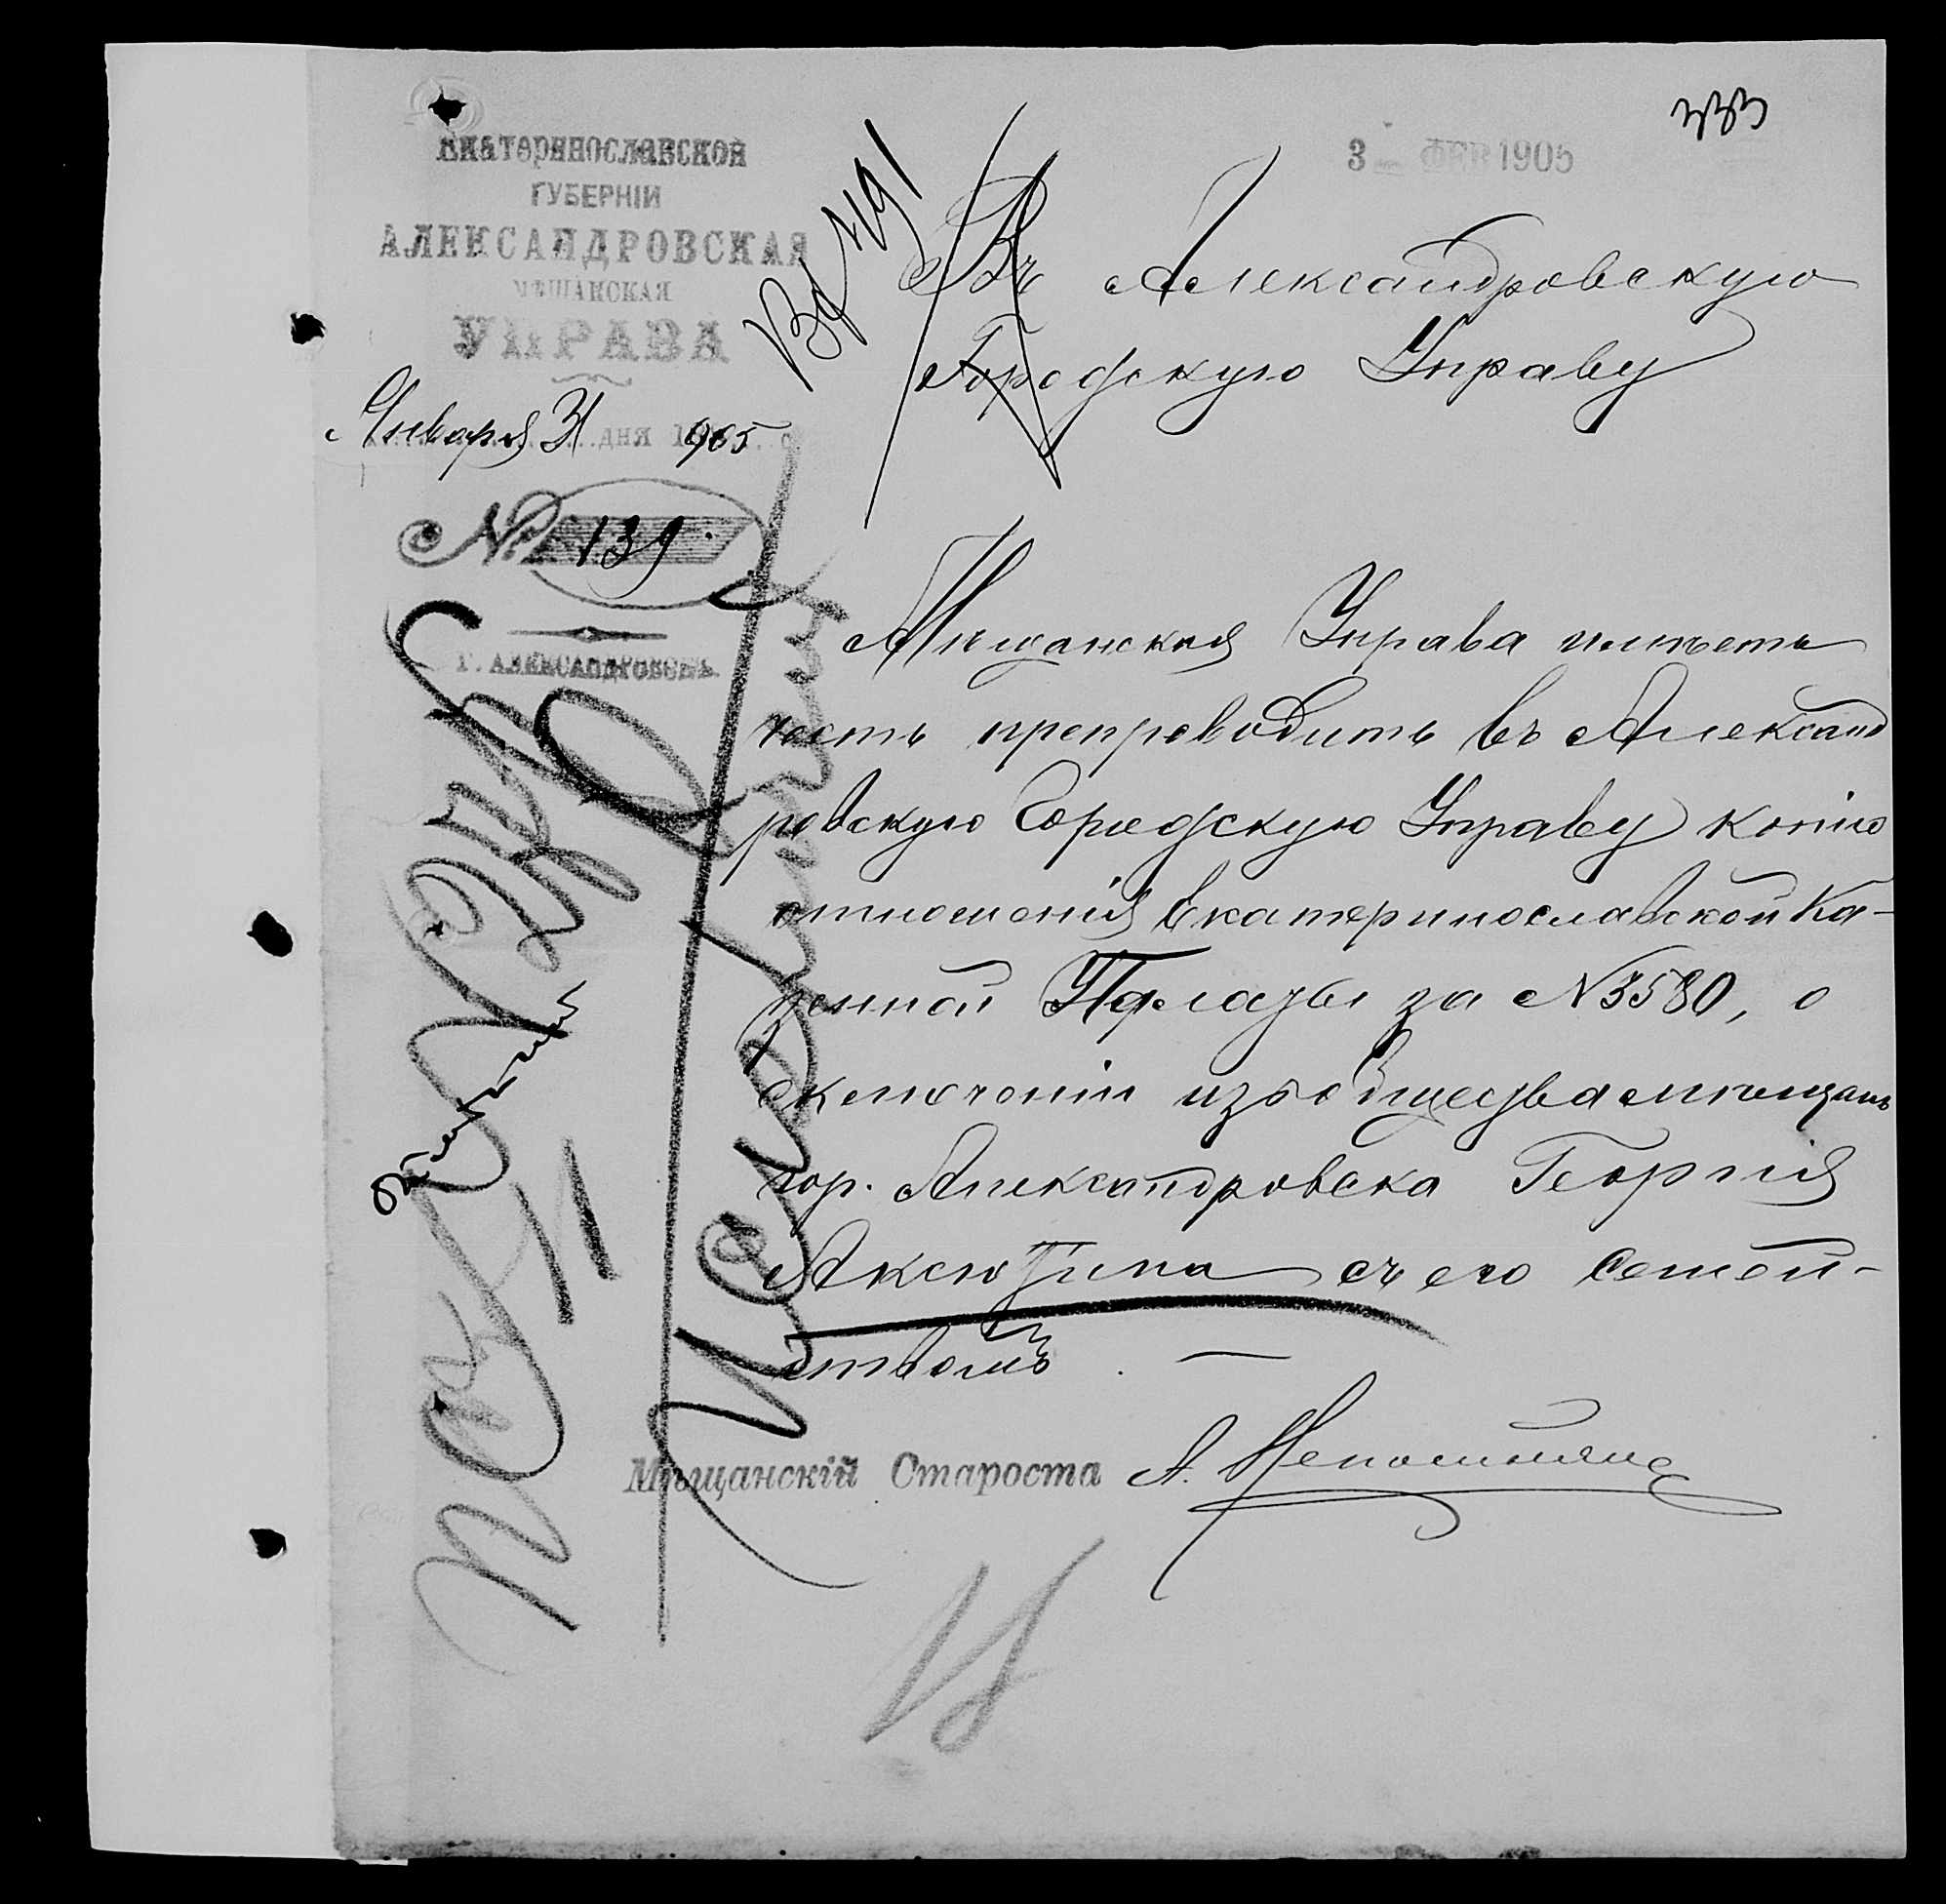 333
3 ФЕВ 1905
Екатеринославской
ГУБЕРНІИ
АЛЕКСАНДРОВСКАЯ
МѢЩАНСКАЯ
УПРАВА
Января 31 дня 1905
№ 139.
Г. АЛЕКСАНДРОВСКЪ.
Въ Александровскую
Городскую Управу
Мѣщанская Управа имѣетъ
честь препроводить въ Александ
ровскую Городскую Управу копію
отношенія Екатеринославской Ка-
зенной Палаты за №3580, о
исключеніи изъ общества мѣщанъ
гор. Александровска Георгія
Аксютина съ его семей-
ствомъ. —
Мѣщанскій Староста А. Непомнящ